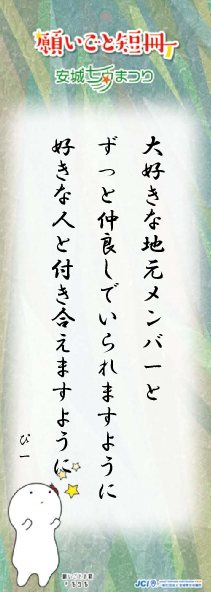 願いごと短冊
安城七夕まつり
大好きな地元メンバーと
ずっと仲良しでいられますように
好きな人と付き合えますように
ぴー
JCI